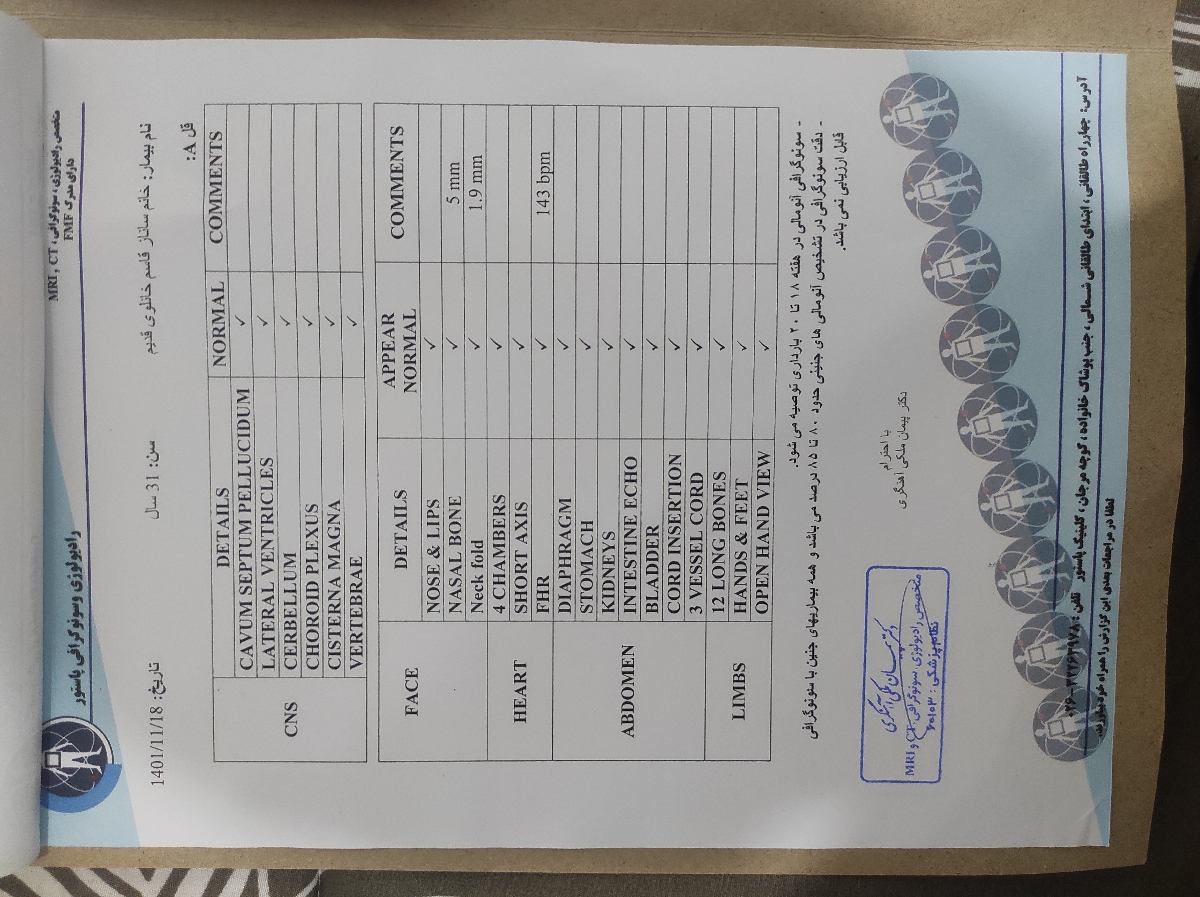 رادیولوژی وسونوگرافی پاستور
متخصص رادیولوژی ، سونوگرافی ، MRI , CT
دارای مدرک FMF
نام بیمار: خانم ساناز قاسم خانلوی قدیم
سن: 31 سال
تاریخ: 1401/11/18
قل A:
DETAILS NORMAL COMMENTS
CNS
CAVUM SEPTUM PELLUCIDUM ✓
LATERAL VENTRICLES ✓
CERBELLUM ✓
CHOROID PLEXUS ✓
CISTERNA MAGNA ✓
VERTEBRAE ✓
DETAILS APPEAR NORMAL COMMENTS
FACE
NOSE & LIPS ✓
NASAL BONE ✓ 5 mm
Neck fold ✓ 1.9 mm
HEART
4 CHAMBERS ✓
SHORT AXIS ✓
FHR ✓ 143 bpm
ABDOMEN
DIAPHRAGM ✓
STOMACH ✓
KIDNEYS ✓
INTESTINE ECHO ✓
BLADDER ✓
CORD INSERTION ✓
3 VESSEL CORD ✓
LIMBS
12 LONG BONES ✓
HANDS & FEET ✓
OPEN HAND VIEW ✓
- سونوگرافی آنومالی در هفته ۱۸ تا ۲۰ بارداری توصیه می شود.
- دقت سونوگرافی در تشخیص آنومالی های جنینی حدود ۸۰ تا ۸۵ درصد می باشد و همه بیماریهای جنین با سونوگرافی
قابل ارزیابی نمی باشد.
با احترام
دکتر پیمان ملکی آهنگری
دکتر پیمان ملکی آهنگری
متخصص رادیولوژی سونوگرافی CT و MRI
نظام پزشکی : ۶۰۱۰۳
آدرس: چهارراه طالقانی ، ابتدای طالقانی شمالی ، جنب پوشاک خانواده ، کوچه مرجان ، کلینیک پاستور تلفن :
لطفا در مراجعات بعدی این گزارش را همراه خود بیاورید.